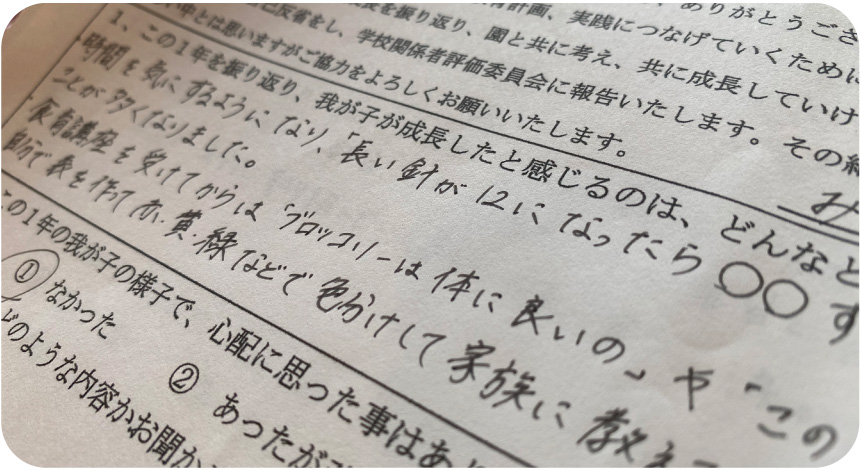 ありがとうござ
計画、実践につなげていくため
長を振り返り、園と共に考え、共に成長していけ
反省をし、学校関係者評価委員会に報告いたします。その
中とは思いますがご協力をよろしくお願いいたします。
1、この1年を振り返り、我が子が成長したと感じるのは、どんなと
時間を気にするようになり、「長い針が12になったら○○す
ことが多くなりました。
食育講座を受けてからは「ブロッコリーは体に良いの」や「この
自分で表を作って赤、黄、緑などで色分けして家族に教え
この1年の我が子の様子で、心配に思った事はあり
① なかった ② あったが
どのような内容かお聞か